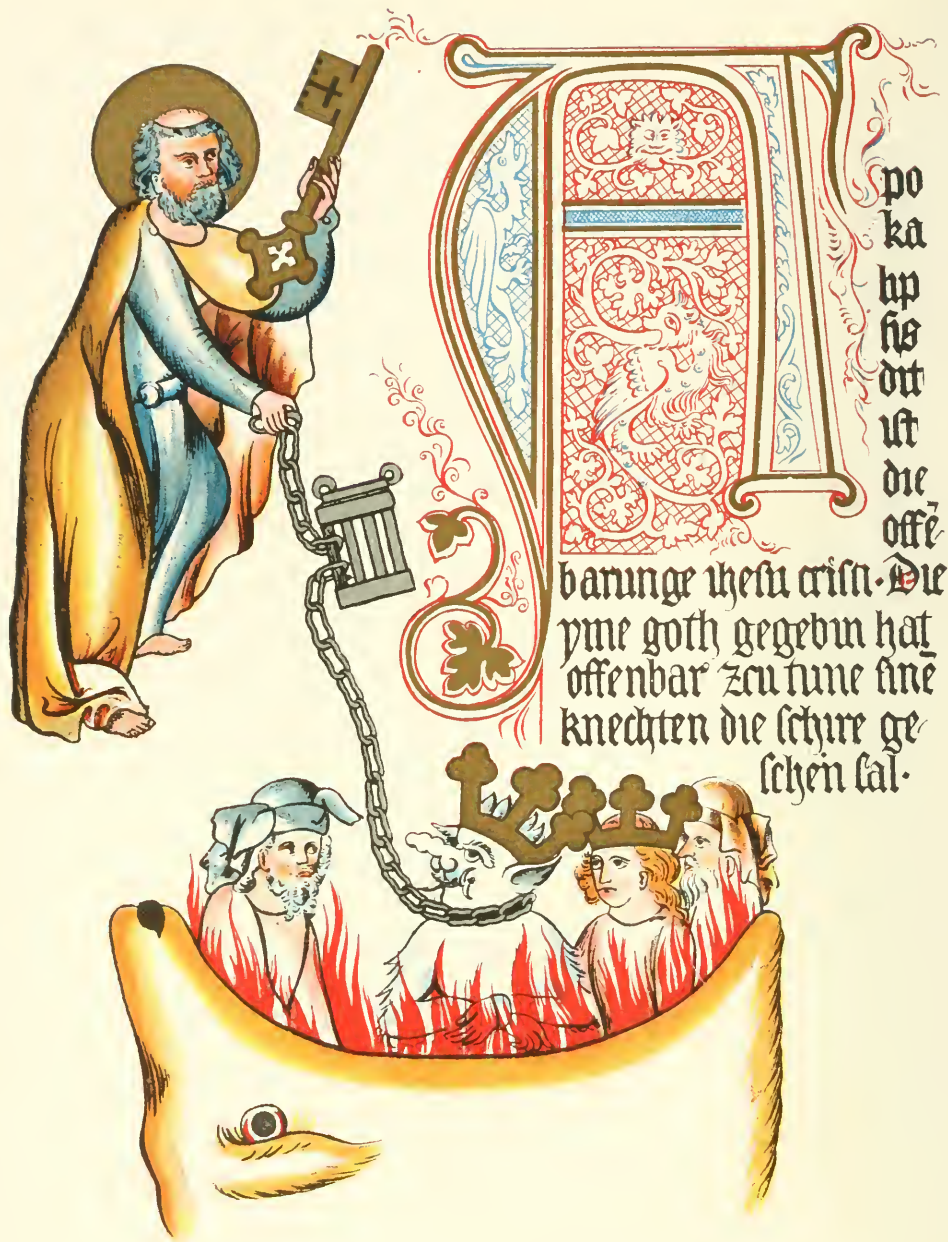 A
po
ka
lip
sis
ditt
ist
die
offē-
barunge ihesu cristi. Die
yme goth gegebin hat
offenbar zcu tune sinē
knechten die schire ge-
schen sal.